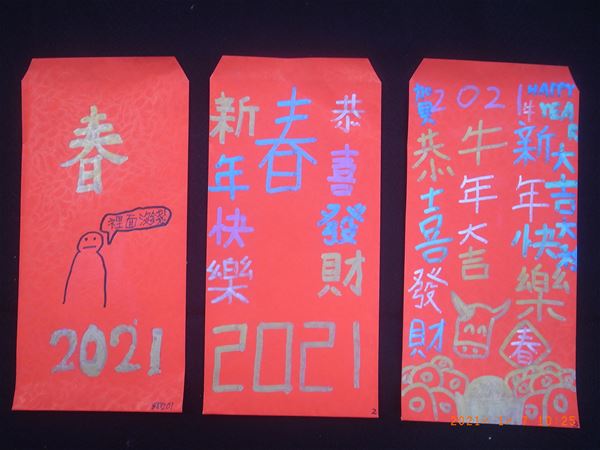 春
裡面沒錢
2021
恭喜發財
春
新年快樂
2021
2
賀2021
HAPPY
YEAR
恭喜發財
牛年大吉
牛新年快樂
春